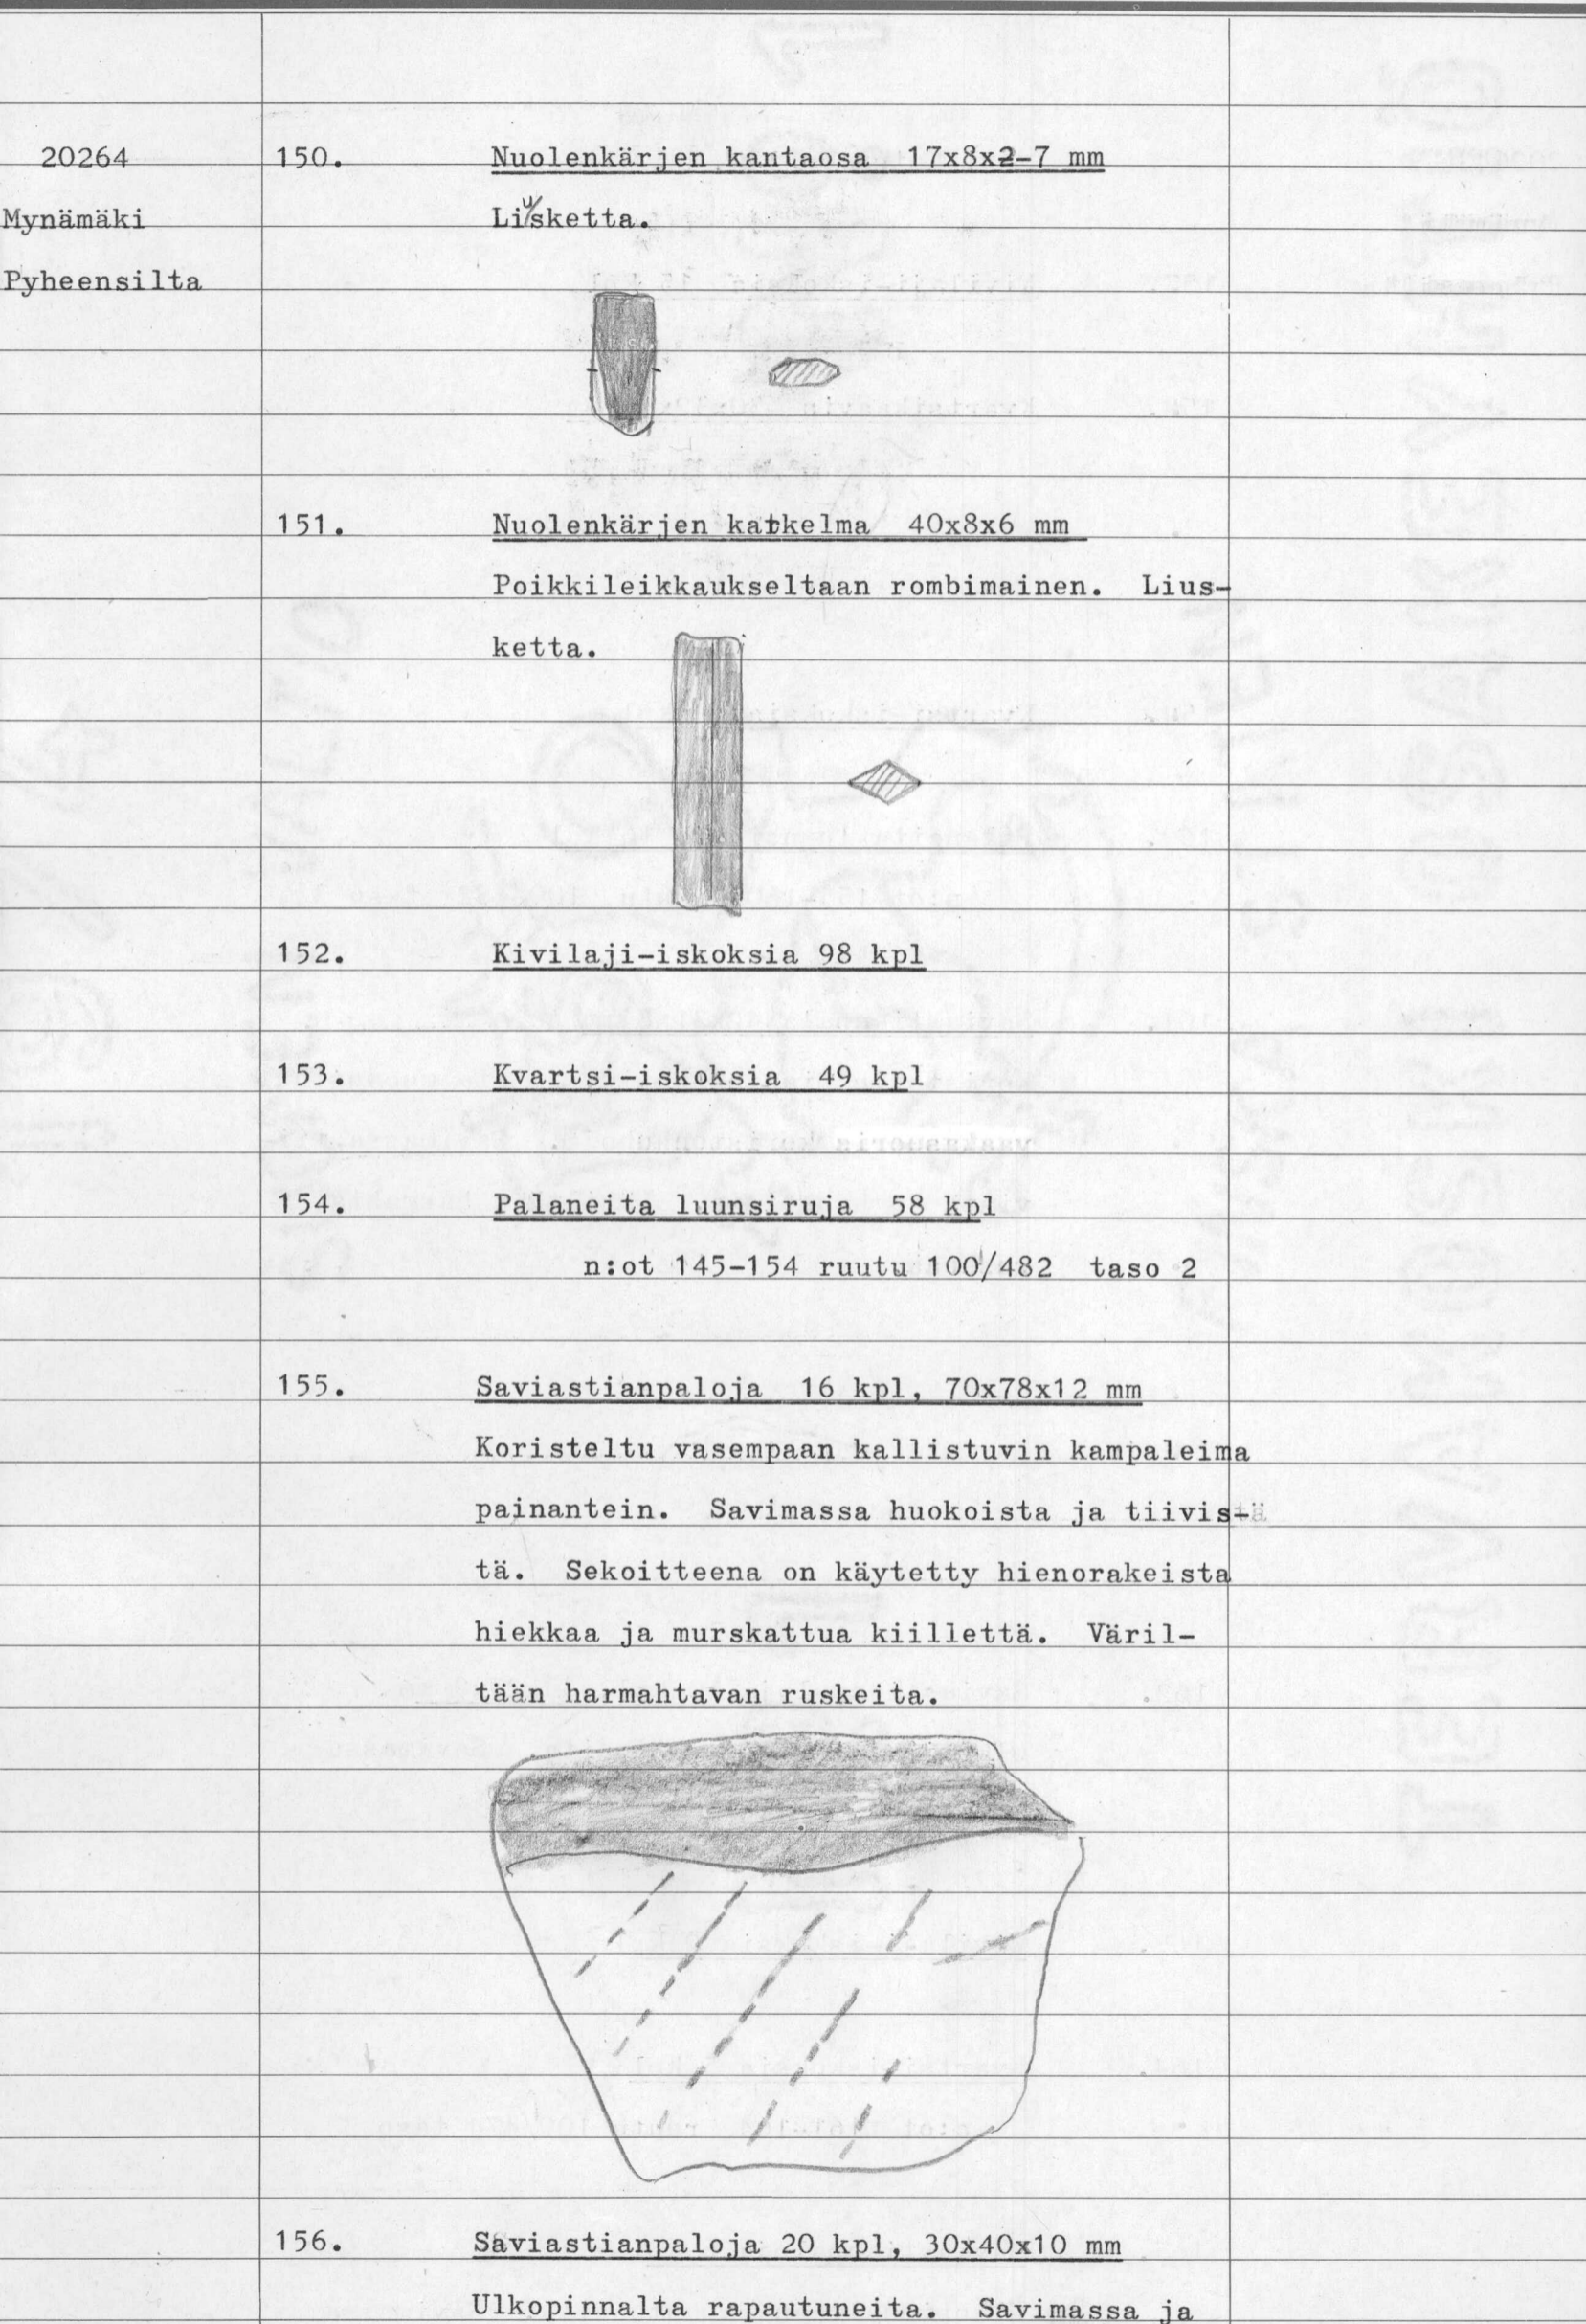 20264 150. Nuolenkärjen kantaosa 17x8x2-7 mm
Mynämäki Liusketta.
Pyheensilta
151. Nuolenkärjen katkelma 40x8x6 mm
Poikkileikkaukseltaan rombimainen. Lius-
ketta.
152. Kivilaji-iskoksia 98 kpl
153. Kvartsi-iskoksia 49 kpl
154. Palaneita luunsiruja 58 kpl
n:ot 145-154 ruutu 100/482 taso 2
155. Saviastianpaloja 16 kpl, 70x78x12 mm
Koristeltu vasempaan kallistuvin kampaleima
painantein. Savimassa huokoista ja tiivis-
tä. Sekoitteena on käytetty hienorakeista
hiekkaa ja murskattua kiillettä. Väril-
tään harmahtavan ruskeita.
156. Saviastianpaloja 20 kpl, 30x40x10 mm
Ulkopinnalta rapautuneita. Savimassa ja